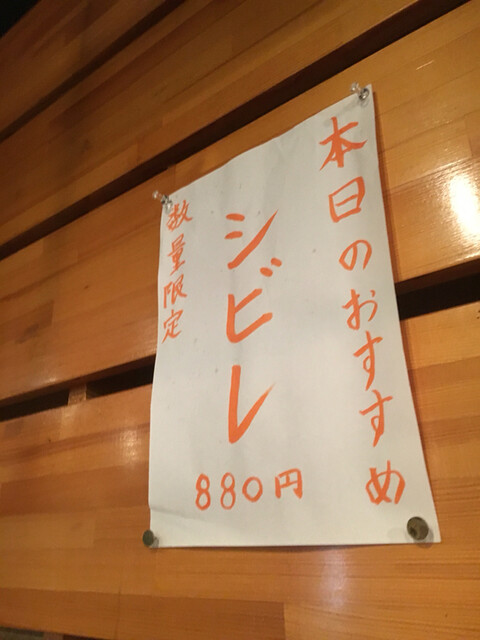 本日のおすすめ
シビレ
880円
数量限定